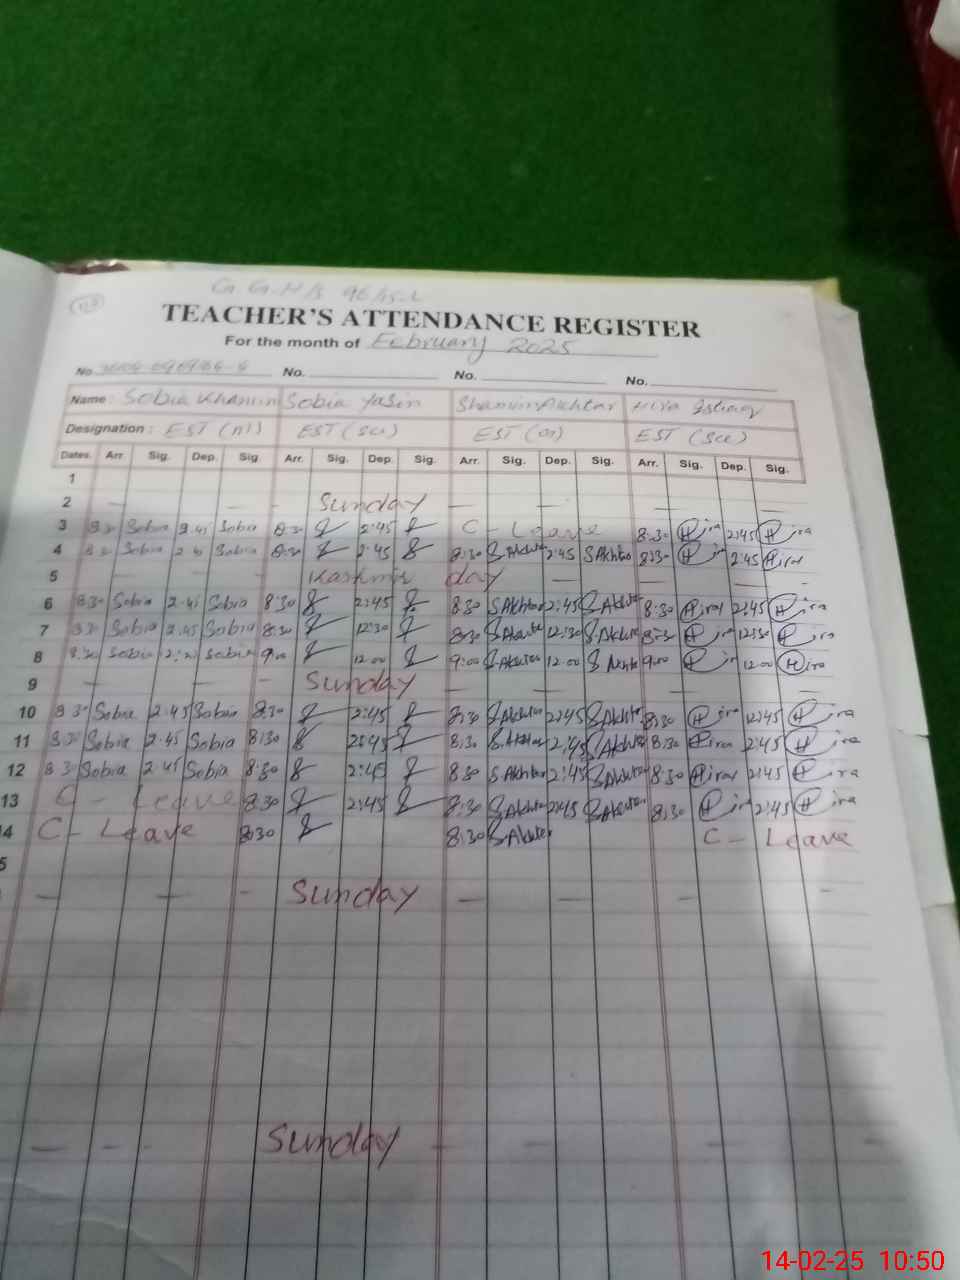 G.G.H/S 96/15-L
TEACHER'S ATTENDANCE REGISTER
For the month of February 2025
No. No. No. No.
Name: Sobia Khanum Sobia Yasin Shamim Akhtar Hira Ishtiaq
Designation: EST (SCI) EST (SCI)
Dates. Arr. Sig. Dep. Sig. Arr. Sig. Dep. Sig. Arr. Sig. Dep. Sig. Arr. Sig. Dep. Sig.
1
2 — — — Sunday — — — —
3 8:30 Sobia 2:45 Sobia 8:30 2:45 C - Leave 8:30 Hira 2:45 Hira
4 8:30 Sobia 2:45 Sobia 8:30 2:45 8:30 S.Akhtar 2:45 S.Akhtar 8:30 Hira 2:45 Hira
5 — — — Kashmir day — —
6 8:30 Sobia 2:45 Sobia 8:30 2:45 8:30 S.Akhtar 2:45 S.Akhtar 8:30 Hira 2:45 Hira
7 8:30 Sobia Sobia 8:30 12:30 8:30 S.Akhtar 12:30 S.Akhtar 8:30 Hira 12:30 Hira
8 Sobia Sobia 9:00 12:00 9:00 S.Akhtar 12:00 S.Akhtar 9:00 Hira 12:00 Hira
9 — — — Sunday — — — —
10 8:30 Sobia 2:45 Sobia 8:30 2:45 8:30 S.Akhtar 2:45 S.Akhtar 8:30 Hira 2:45 Hira
11 8:30 Sobia 2:45 Sobia 8:30 2:45 8:30 S.Akhtar 2:45 S.Akhtar 8:30 Hira 2:45 Hira
12 8:30 Sobia 2:45 Sobia 8:30 2:45 8:30 S.Akhtar 2:45 S.Akhtar 8:30 Hira 2:45 Hira
13 C - Leave 8:30 2:45 8:30 S.Akhtar 2:45 S.Akhtar 8:30 Hira 2:45 Hira
4 C - Leave 8:30 8:30 S.Akhtar C - Leave
5
— — - Sunday — — — —
— — - Sunday — — — —
14-02-25 10:50